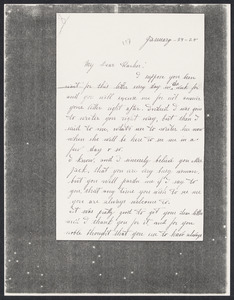 January - 29 - 25
My Dear
I suppose you been
want for this letter every day so, and
will you will excuse me for not answer
your letter right after. Indeed I was going
to writer you right way, but then I
said to me, what's use to write her now
when she will be here to in me in a
few day or so.
I know, and I sincerely believe you
fact, that you are very busy woman,
but you will pardon me if I say to
you that any time you wish to see me
you are always welcome to.
It was pretty good to get your letter
and I thank you for it and for your
noble thought that you use to have always